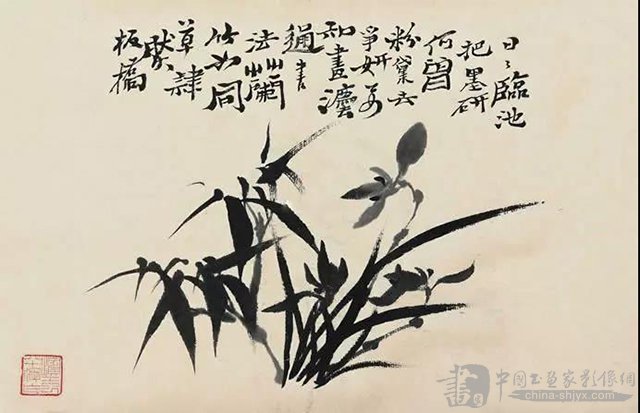 日々臨池
把墨研
何曾
粉黛去
爭妍要
知畫灋
通書
法蘭
竹如同
草隸
然
板橋
書
中国书画家影像網
china-shjyx.com